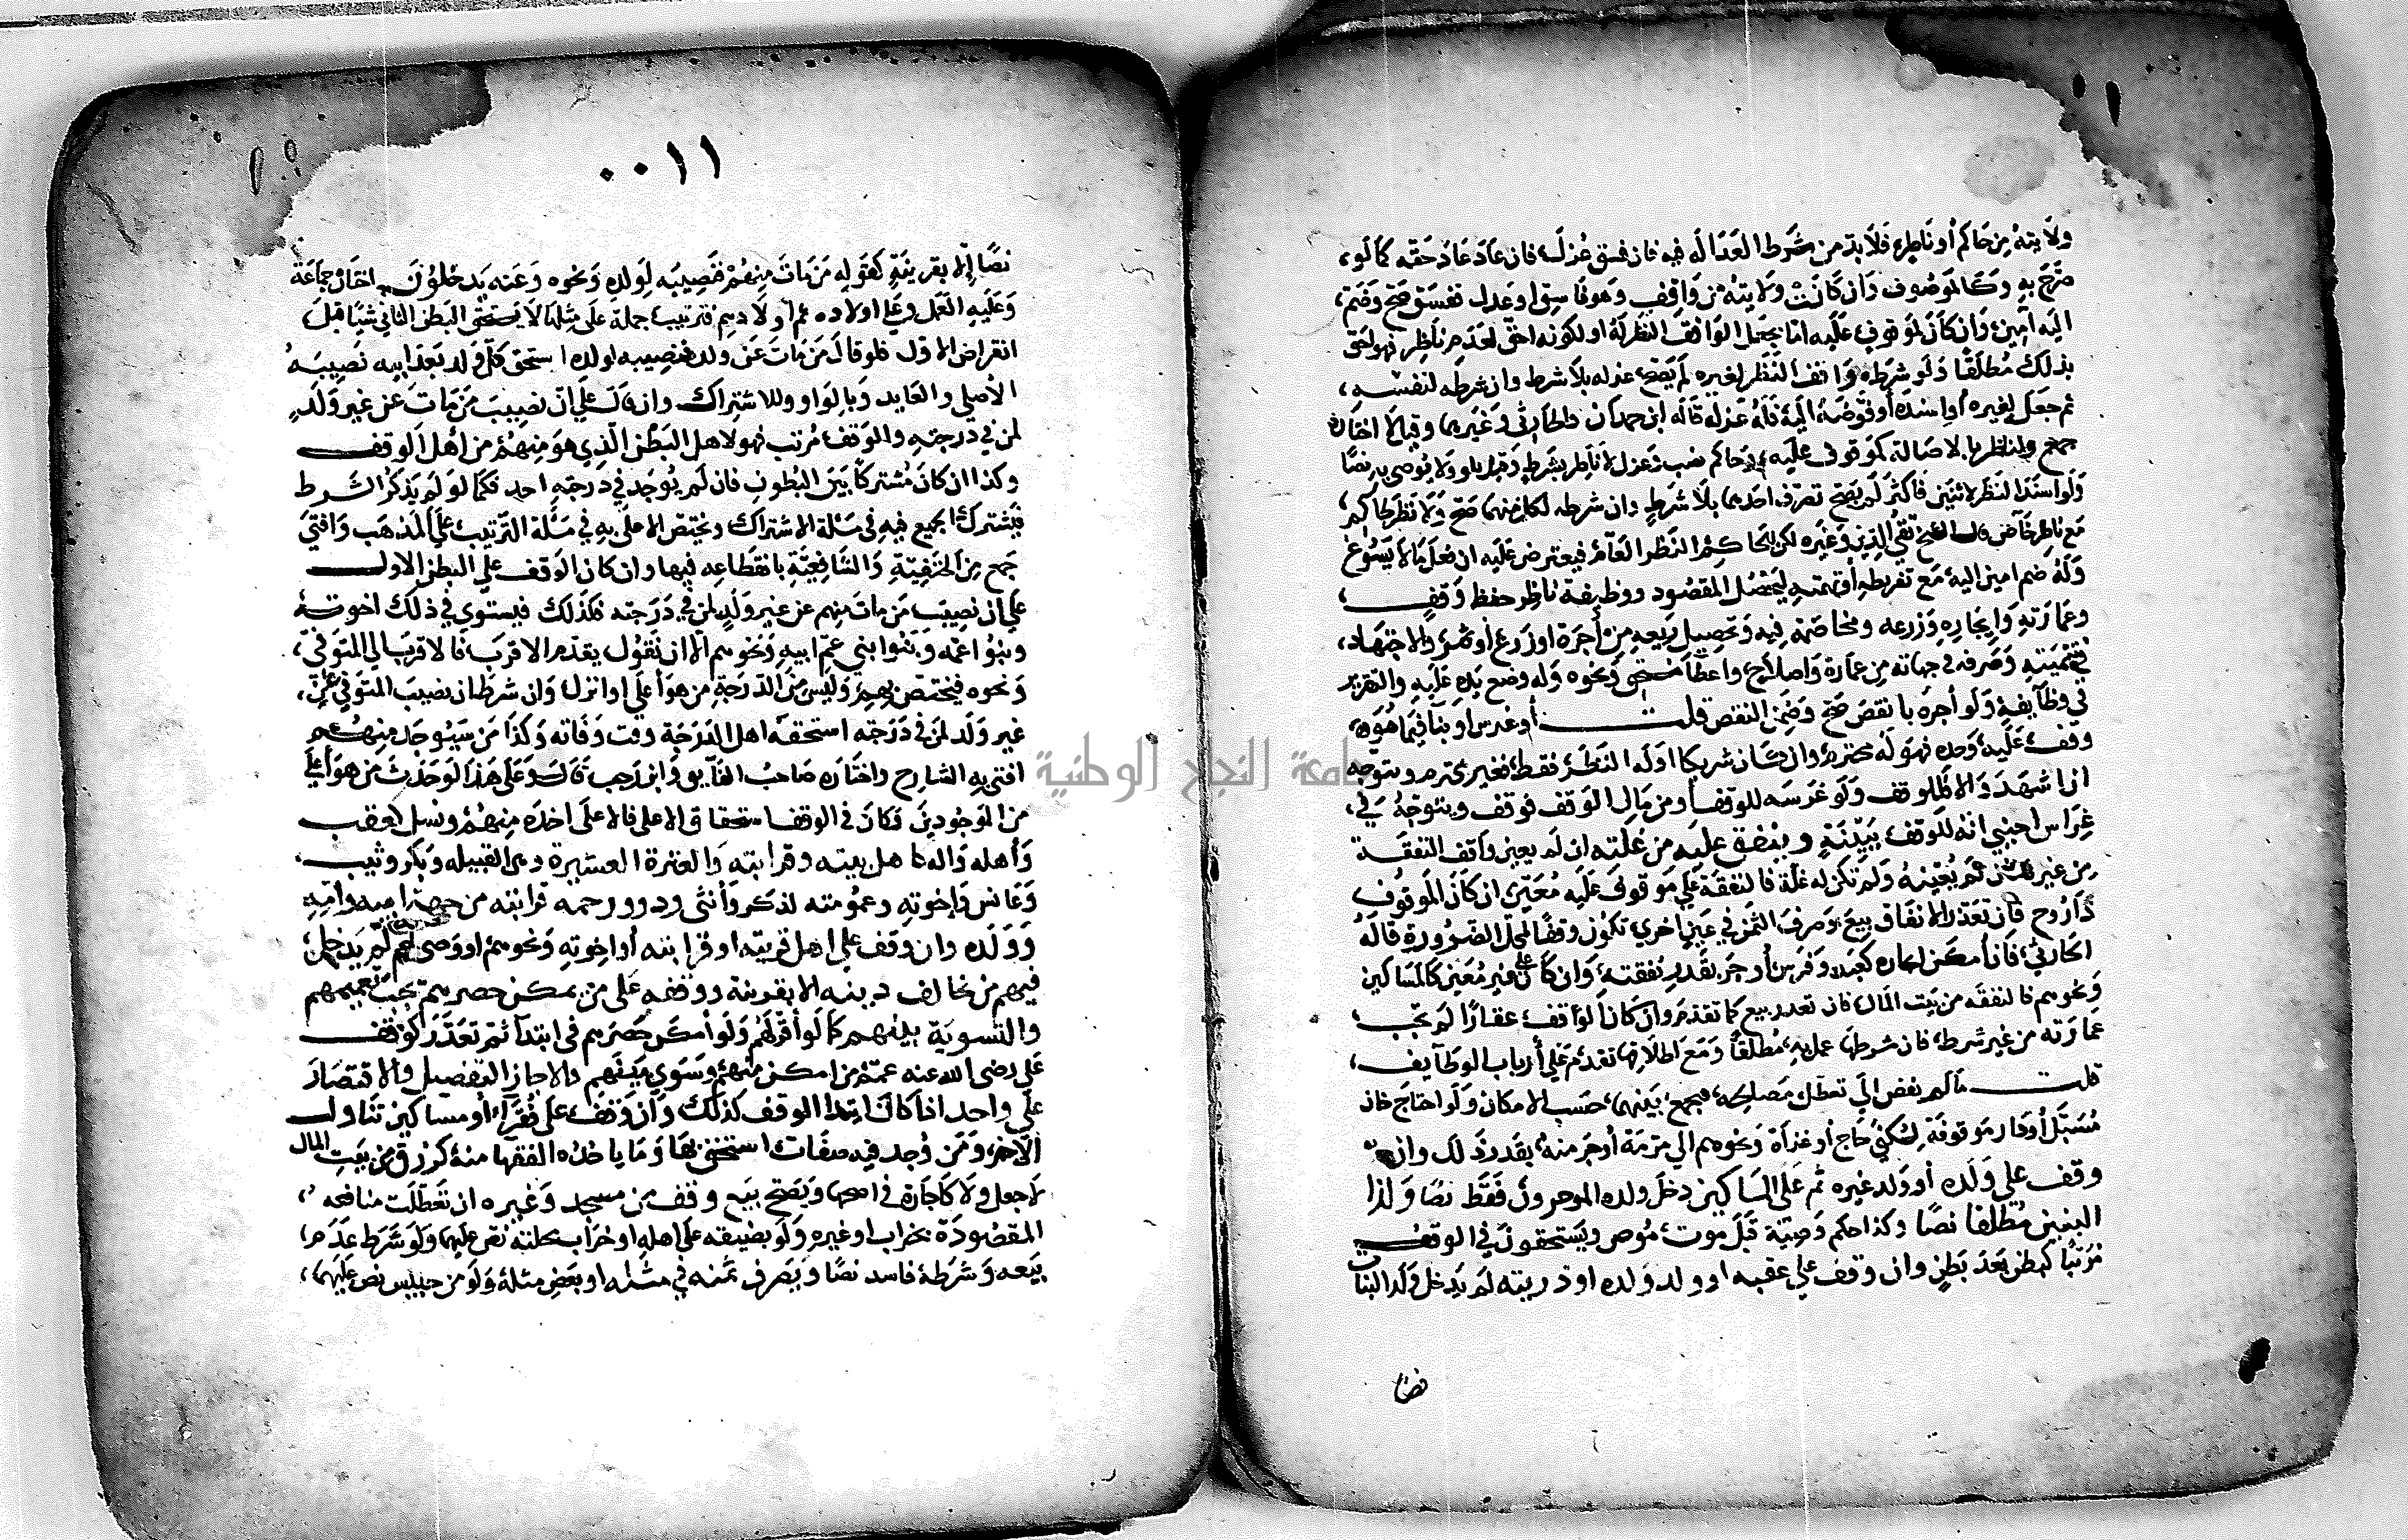 ولايته من حاكم أو ناظر فلا بد من شرط العدالة فيه فان فسق عزل فان عاد عاد حقه كما لو
صرح به وكالموصوف وان كانت ولايته من واقف وهو فاسق او عدل ففسق صح وضم
اليه أمين وان كان لموقوف عليه اما بجعل الواقف النظر له او لكونه احق لعدم ناظر فهو احق
بذلك مطلقا ولو شرطه واقف النظر لغيره لم يصح عزله بلا شرط وان شرطه لنفسه
ثم جعله لغيره أو اسنده أو فوضه اليه فله عزله قاله ابن حمدان والحارثي وغيرهما وقيل لا اختاره
جمع ولناظر بالاصالة كموقوف عليه وحاكم نصب وعزل لا ناظر بشرط ولا يوصي به نصا
ولو اسند النظر لاثنين فاكثر لم يصح تصرف احدهما بلا شرط وان شرطه لكل منهما صح ولا نظر لحاكم
مع ناظر خاص قال الشيخ تقي الدين وغيره لكن للحاكم النظر العام فيعترض عليه ان فعل ما لا يسوغ
وله ضم امين اليه مع تفريطه أو تهمته ليحصل المقصود ووظيفة ناظر حفظ وقف
وعمارته وايجاره وزرعه ومخاصمة فيه وتحصيل ريعه من أجرة او زرع أو ثمر والاجتهاد
في تنميته وصرفه في جهاته من عمارة واصلاح واعطا مستحق ونحوه وله وضع يده عليه والتقرير
في وظايفه ولو أجره بانقص صح وضمن النقص قلت أو غرس او بنا فيما هو
وقف عليه وحده فهو له محترم وان كان شريكا او له النظر فقط فغير محترم ويتوجه
ان اشهد والا فللوقف ولو غرسه للوقف أو من مال الوقف فوقف ويتوجه في
غراس اجنبي انه للوقف ببينة وينفق عليه من غلته ان لم يعين واقف النفقة
من غيره فان لم يعينه ولم تكن له غلة فالنفقة علي موقوف عليه معين ان كان الموقوف
ذا روح فان تعذر الانفاق بيع وصرف الثمن في عين اخري تكون وقفا لمحل الضرورة قاله
الحارثي فان أمكن ايجاره كعبد وفرس أوجر بقدر نفقته وان كان علي غير معين كالمساكين
ونحوهم فالنفقة من بيت المال فان تعذر بيع كما تقدم وان كان الواقف عقارا لم تجب
عمارته من غير شرط فان شرطها عمل به مطلقا ومع اطلاقها تقدم علي أرباب الوظايف
قلت ما لم يفض الي تعطل مصلحة فيجمع بينهما حسب الامكان ولو احتاج خان
مسبل أو دار موقوفة لسكني حاج أو غزاة ونحوهم الي مرمة أوجر منه بقدر ذلك وان
وقف علي ولده أو ولد غيره ثم علي المساكين دخل ولده الموجودون فقط نصا ولدا
البنين مطلقا نصا وكذا حكم وصية قبل موت موص ويستحقون في الوقف
مرتبا كبطن بعد بطن وان وقف علي عقبه او ولد ولده او ذريته لم يدخل ولد البنات
نصا
٠٠١١
نصا إلا بقرينة كقوله من مات منهم فنصيبه لولده ونحوه وعنه يدخلون اختاره جماعة
وعليه العمل وعلي اولاده ثم أولادهم فترتيب جملة علي مثلها لا يستحق البطن الثاني شيئا قبل
انقراض الاول فلو قال من مات عن ولد فنصيبه لولده استحق كل ولد بعد ابيه نصيبه
الأصلي والعايد وبالواو وللاشتراك وان قال علي ان نصيب من مات عن غير ولد
لمن في درجته والوقف مرتب فهو لاهل البطن الذي هو منهم من اهل الوقف
وكذا ان كان مشتركا بين البطون فان لم يوجد في درجته احد فكما لو لم يذكر الشرط
فيشترك الجميع فيه في مسئلة الاشتراك ويختص الاعلي به في مسئلة الترتيب علي المذهب وافتي
جمع من الحنفية والشافعية بانقطاعه فيها وان كان الوقف علي البطن الاول
علي ان نصيب من مات منهم عن غير ولد لمن في درجته فكذلك فيستوي في ذلك اخوته
وبنو اعمه وبنوا بني عم ابيه ونحوهم الا ان نقول يقدم الاقرب فالاقرب الي المتوفي
ونحوه فيختص بهم وليس من الدرجة من هو أعلي او انزل وان شرط ان نصيب المتوفي عن
غير ولد لمن في درجته استحقه اهل الدرجة وقت وفاته وكذا من سيوجد منهم
افتي به الشارح واختاره صاحب الفايق وابن رجب قال وعلي هذا لو حدث من هو أعلي
من الموجودين وكان في الوقف استحقاق الاعلي فالاعلي اخذه منهم ونسل كعقب
وأهله وآله كاهل بيته وقرابته والعترة العشيرة وهي القبيله وبكر وثيب
وعانس واخوته وعمومته لذكر وأنثي وذوو رحمه قرابته من جهة ابيه وامه
وولده وان وقف علي اهل قريته او قرابته أو اخوته ونحوهم او وصي لهم لم يدخل
فيهم من خالف دينه الا بقرينة ووقفه علي من يمكن حصرهم يجب تعميمهم
والتسوية بينهم كما لو أقر لهم ولو أمكن حصرهم في ابتدا ثم تعذر كوقف
علي رضي الله عنه عمم من امكن منهم وسوي بينهم والا جاز التفضيل والاقتصار
علي واحد اذا كان ابتدا الوقف كذلك وان وقف علي فقرا أو مساكين تناول
الآخر ومن وجد فيه صفات استحق بها وما ياخذه الفقها منه كرزق من بيت المال
لا جعل ولا كاجارة في اصحها ويصح بيع وقف من مسجد وغيره ان تعطلت منافعه
المقصودة بخراب او غيره ولو بضيقه علي اهله او خراب محلته نص عليهما ولو شرط عدم
بيعه وشرطه فاسد نصا ويصرف ثمنه في مثله او بعض مثله ولو من حبيس نص عليهما